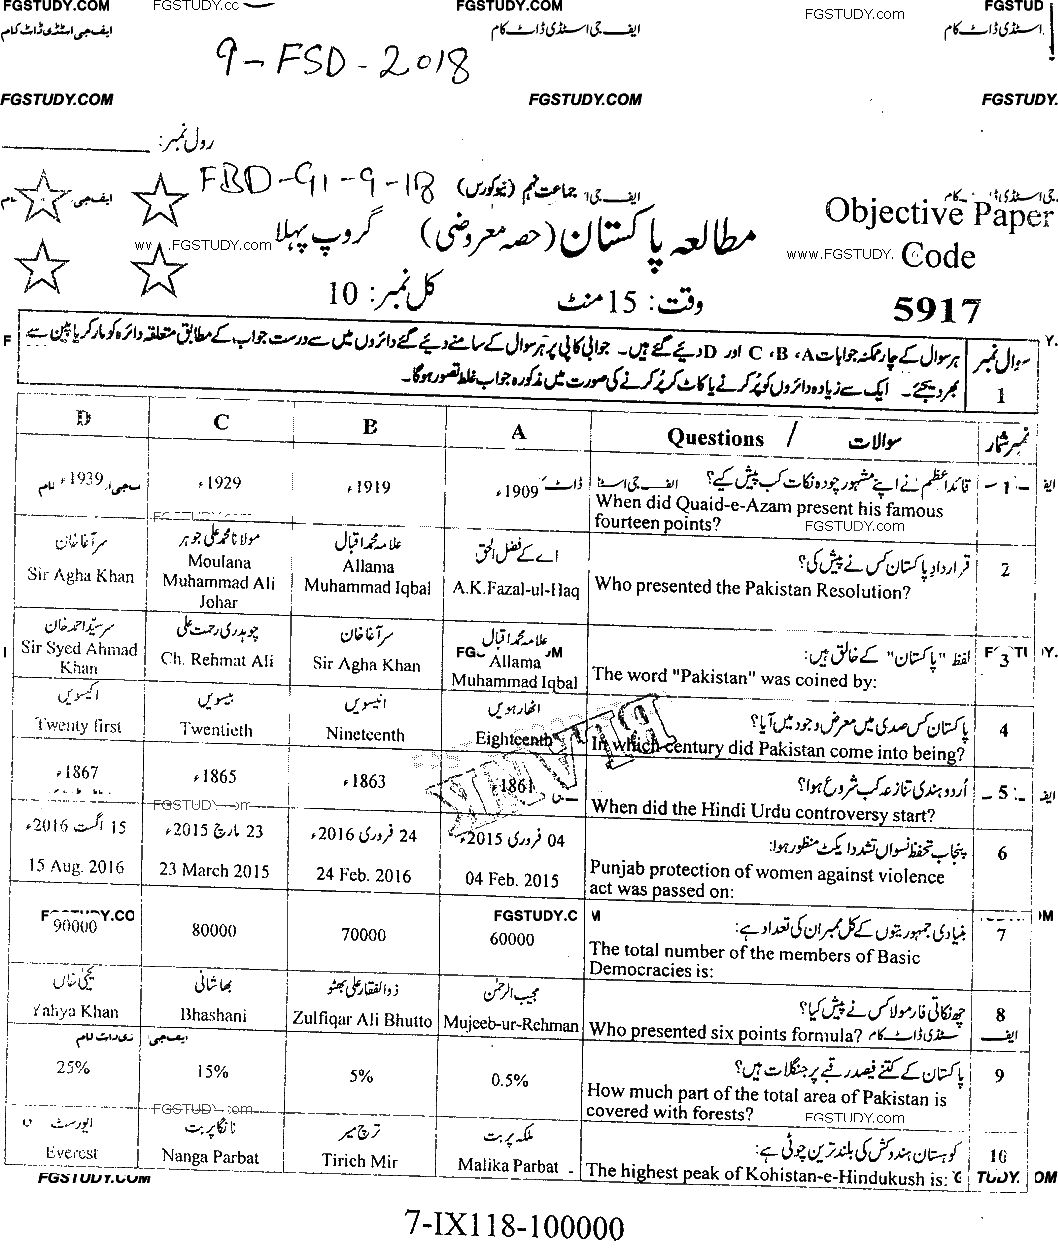 FGSTUDY.COM FGSTUDY.cc FGSTUDY.COM FGSTUDY.com FGSTUD
ایف جی اسٹڈی ڈاٹ کام ایف جی اسٹڈی ڈاٹ کام اسٹڈی ڈاٹ کام
9-FSD-2018
FGSTUDY.COM FGSTUDY.COM FGSTUDY.
رول نمبر:
FBD-G1-9-18 (نیو کورس) جماعت نہم
Objective Paper
مطالعہ پاکستان (حصہ معروضی) گروپ پہلا
.FGSTUDY.com www.FGSTUDY.
Code
وقت: 15 منٹ کل نمبر: 10
5917
سوال نمبر 1
ہر سوال کے چار ممکنہ جوابات A، B، C اور D دیئے گئے ہیں۔ جوابی کاپی پر ہر سوال کے سامنے دیئے گئے دائروں میں سے درست جواب کے مطابق متعلقہ دائرہ کو مارکر یا پین سے
بھر دیجئے۔ ایک سے زیادہ دائروں کو پُر کرنے یا کاٹ کر پُر کرنے کی صورت میں مذکورہ جواب غلط تصور ہوگا۔
D C B A Questions / سوالات نمبر شمار
1939ء 1929ء 1919ء 1909ء قائداعظم نے اپنے مشہور چودہ نکات کب پیش کیے؟ 1
When did Quaid-e-Azam present his famous
fourteen points? FGSTUDY.com
سر آغا خان مولانا محمد علی جوہر علامہ محمد اقبال اے کے فضل الحق قرارداد پاکستان کس نے پیش کی؟ 2
Sir Agha Khan Moulana Muhammad Ali Johar Allama Muhammad Iqbal A.K.Fazal-ul-Haq Who presented the Pakistan Resolution?
سر سید احمد خان چوہدری رحمت علی سر آغا خان علامہ محمد اقبال لفظ "پاکستان" کے خالق ہیں: 3
Sir Syed Ahmad Khan Ch. Rehmat Ali Sir Agha Khan Allama Muhammad Iqbal The word "Pakistan" was coined by:
اکیسویں بیسویں انیسویں اٹھارہویں پاکستان کس صدی میں معرض وجود میں آیا؟ 4
Twenty first Twentieth Nineteenth Eighteenth In which century did Pakistan come into being?
1867ء 1865ء 1863ء 1861ء اُردو ہندی تنازعہ کب شروع ہوا؟ 5
When did the Hindi Urdu controversy start?
15 اگست 2016ء 23 مارچ 2015ء 24 فروری 2016ء 04 فروری 2015ء پنجاب تحفظ نسواں تشدد ایکٹ منظور ہوا: 6
15 Aug. 2016 23 March 2015 24 Feb. 2016 04 Feb. 2015 Punjab protection of women against violence
act was passed on:
90000 80000 70000 60000 بنیادی جمہوریتوں کے کل ممبران کی تعداد ہے: 7
The total number of the members of Basic
Democracies is:
یحییٰ خاں بھاشانی ذوالفقار علی بھٹو مجیب الرحمٰن چھ نکاتی فارمولا کس نے پیش کیا؟ 8
Yahya Khan Bhashani Zulfiqar Ali Bhutto Mujeeb-ur-Rehman Who presented six points formula? سٹڈی ڈاٹ کام
25% 15% 5% 0.5% پاکستان کے کتنے فیصد رقبے پر جنگلات ہیں؟ 9
How much part of the total area of Pakistan is
covered with forests? FGSTUDY.com
ایورسٹ نانگا پربت ترچ میر ملکہ پربت کوہستان ہندوکش کی بلند ترین چوٹی ہے: 10
Everest Nanga Parbat Tirich Mir Malika Parbat The highest peak of Kohistan-e-Hindukush is:
FGSTUDY.COM
7-IX118-100000